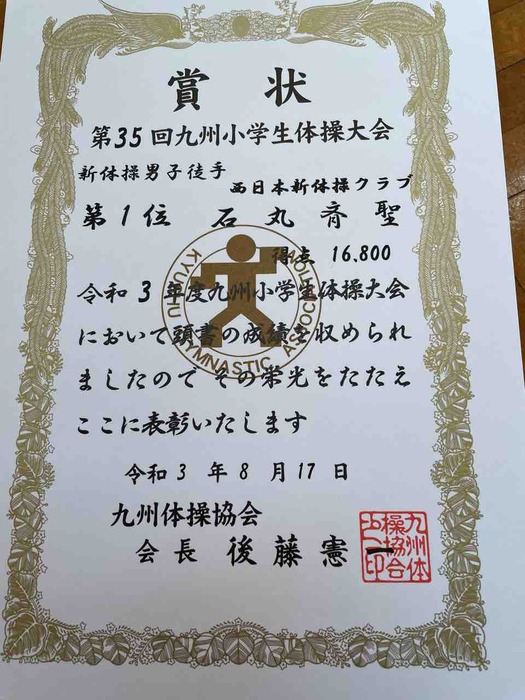 賞状
第35回九州小学生体操大会
新体操男子徒手
西日本新体操クラブ
第1位 石丸斉聖
得点 16.800
令和3年度九州小学生体操大会
において頭書の成績を収められ
ましたので その栄光をたたえ
ここに表彰いたします
令和3年8月17日
九州体操協会
会長 後藤憲一
KYUSHU GYMNASTIC ASSOCIATION
九州体操協会